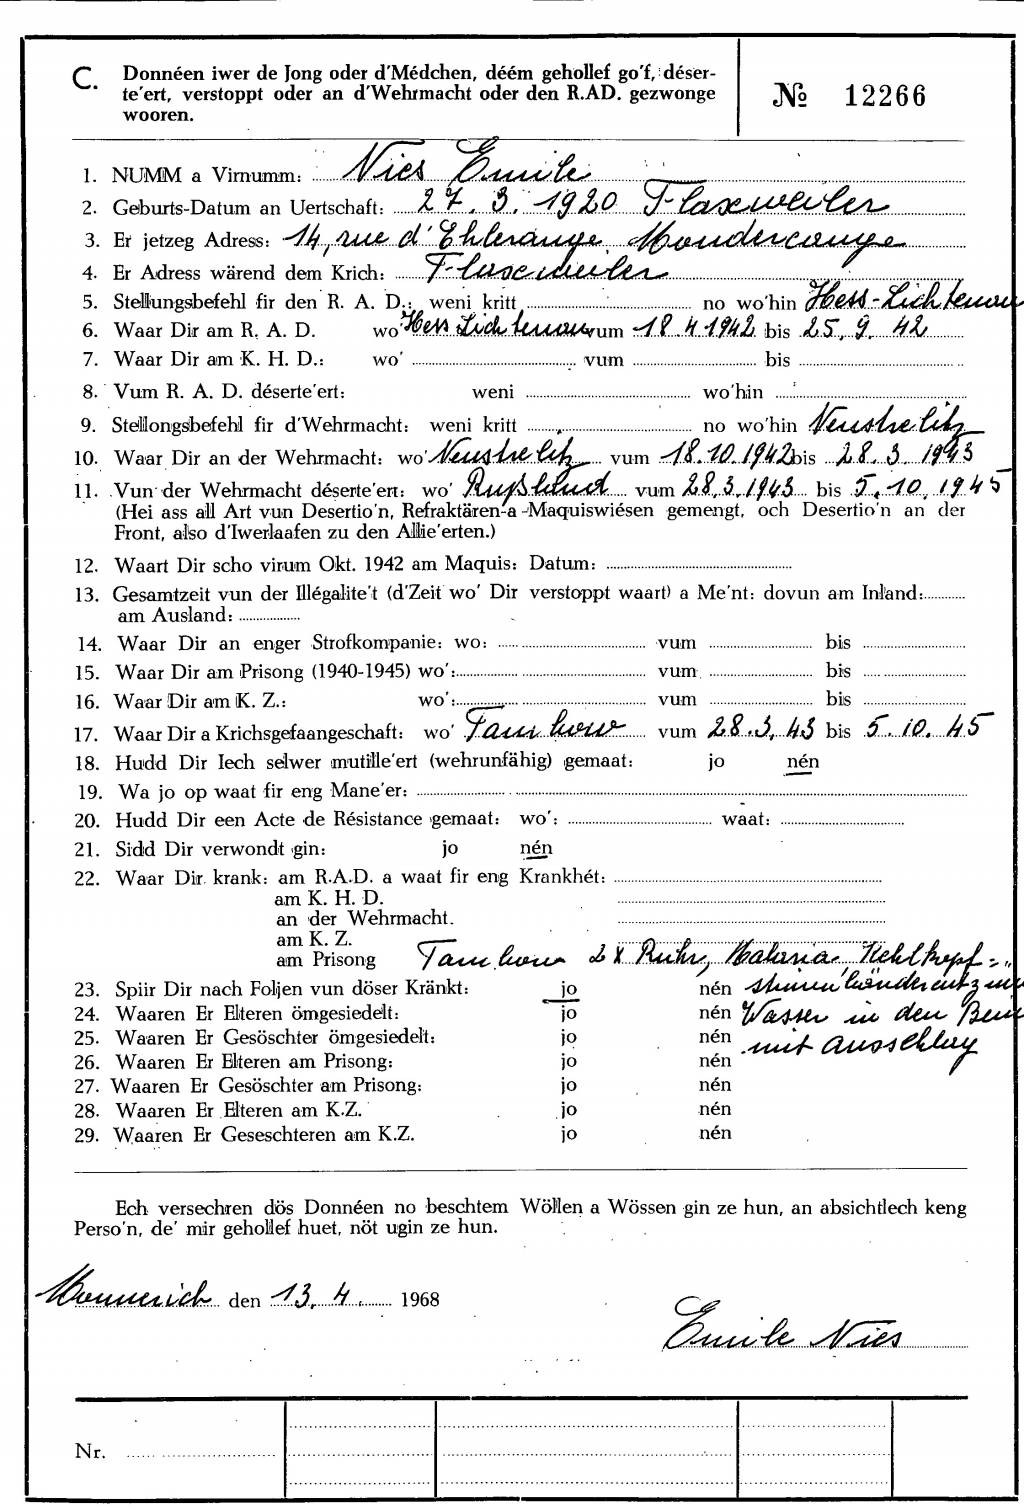 C. Donnéen iwer de Jong oder d'Médchen, déém gehollef go'f, déser-
te'ert, verstoppt oder an d'Wehrmacht oder den R.AD. gezwonge
wooren.
№ 12266
1. NUMM a Virnumm: Nies Emile
2. Geburts-Datum an Uertschaft: 27. 3. 1920 Flaxweiler
3. Er jetzeg Adress: 14, rue d'Ehlerange Mondercange
4. Er Adress wärend dem Krich: Flaxweiler
5. Stellungsbefehl fir den R. A. D.: weni kritt no wo'hin Hess-Lichtenau
6. Waar Dir am R. A. D. wo' Hess Lichtenau vum 18.4.1942 bis 25. 9. 42
7. Waar Dir am K. H. D.: wo' vum bis
8. Vum R. A. D. déserte'ert: weni wo'hin
9. Stellongsbefehl fir d'Wehrmacht: weni kritt no wo'hin Neustrelitz
10. Waar Dir an der Wehrmacht: wo' Neustrelitz vum 18.10.1942 bis 28. 3. 1943
11. Vun der Wehrmacht déserte'ert: wo' Rußland vum 28.3.1943 bis 5. 10. 1945
(Hei ass all Art vun Desertio'n, Refraktären-a -Maquiswiésen gemengt, och Desertio'n an der
Front, also d'Iwerlaafen zu den Allie'erten.)
12. Waart Dir scho virum Okt. 1942 am Maquis: Datum:
13. Gesamtzeit vun der Illégalite't (d'Zeit wo' Dir verstoppt waart) a Me'nt: dovun am Inland:
am Ausland:
14. Waar Dir an enger Strofkompanie: wo: vum bis
15. Waar Dir am Prisong (1940-1945) wo': vum bis
16. Waar Dir am K. Z.: wo': vum bis
17. Waar Dir a Krichsgefaangeschaft: wo' Tambow vum 28.3.43 bis 5. 10. 45
18. Hudd Dir Iech selwer mutille'ert (wehrunfähig) gemaat: jo nén
19. Wa jo op waat fir eng Mane'er:
20. Hudd Dir een Acte de Résistance gemaat: wo': waat:
21. Sidd Dir verwondt gin: jo nén
22. Waar Dir krank: am R.A.D. a waat fir eng Krankhét:
am K. H. D.
an der Wehrmacht.
am K. Z.
am Prisong Tambow 2 x Ruhr, Malaria, Kehlkopf=
23. Spiir Dir nach Foljen vun döser Kränkt: jo nén
24. Waaren Er Elteren ömgesiedelt: jo nén Wasser in den Bein
25. Waaren Er Gesöschter ömgesiedelt: jo nén mit Ausschlag
26. Waaren Er Elteren am Prisong: jo nén
27. Waaren Er Gesöschter am Prisong: jo nén
28. Waaren Er Elteren am K.Z. jo nén
29. Waaren Er Geseschteren am K.Z. jo nén
Ech versechren dös Donnéen no beschtem Wöllen a Wössen gin ze hun, an absichtlech keng
Perso'n, de' mir gehollef huet, nöt ugin ze hun.
Monnerich den 13. 4. 1968
Emile Nies
Nr.